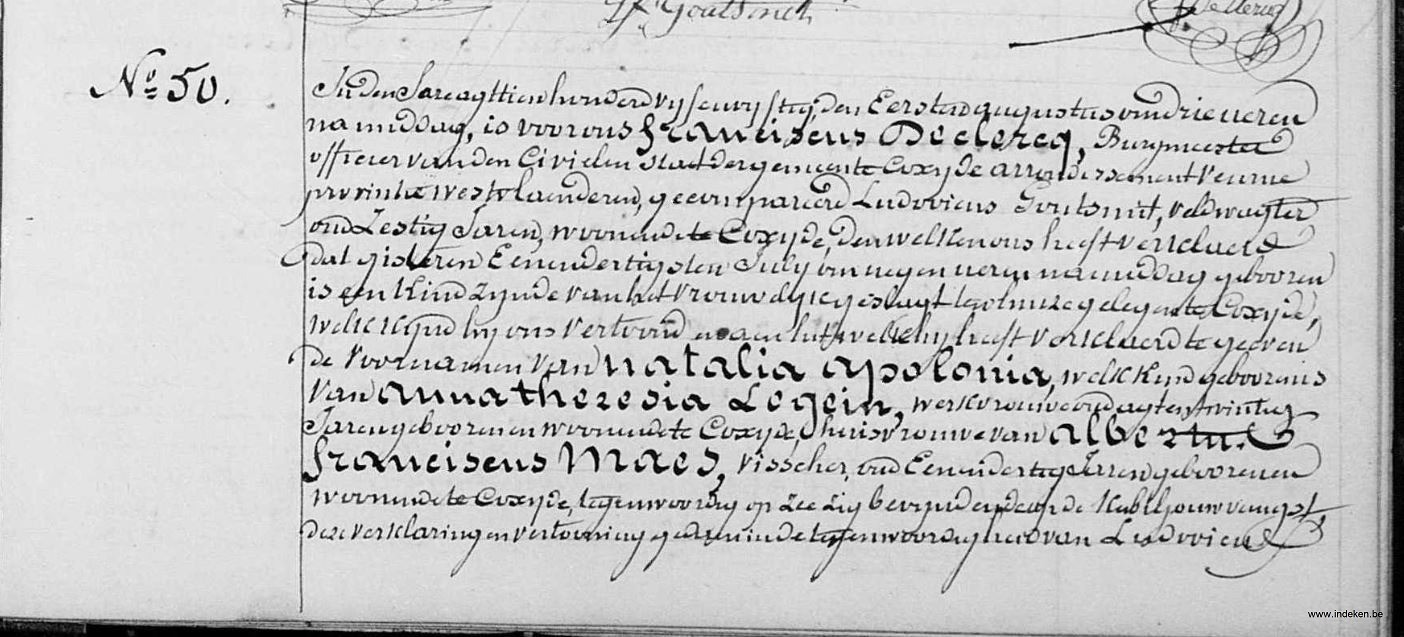 Goutsmit
Declercq
No 50.
In den Jare agttien honderd vyf en vyftig, den Eersten augustus om drie ueren
na middag, is voor ons franciscus Declercq, Burgmeester
officier van den Civielen staet der gemeente Coxyde arrondissement Veurne
provintie westvlaenderen, gecompareerd Ludovicus Goutsmit, veldwagter
oud Zestig Jaren, woonende te Coxyde, den welken ons heeft verklaerd
dat gisteren Eenendertigsten July om negen ueren namiddag gebooren
is een kind zynde van het vrouwelyk geslagt ten huize gelegen te Coxyde,
welk kind hy ons vertoond en aen het welk hy heeft verklaerd te geeven
de voornamen van natalia apolonia, welk kind gebooren is
van anna theresia Legein, werkvrouwe oud agtentwintig
Jaren gebooren en woonende te Coxyde, huisvrouwe van albertus
franciscus Maes, visscher, oud Eenendertig Jaren gebooren en
woonende te Coxyde, tegenwoordig op zee zig bevindende op de Kabeljouwvangst,
deze verklaring en vertooning gedaen in de tegenwoordigheid van Ludovicus
www.indeken.be